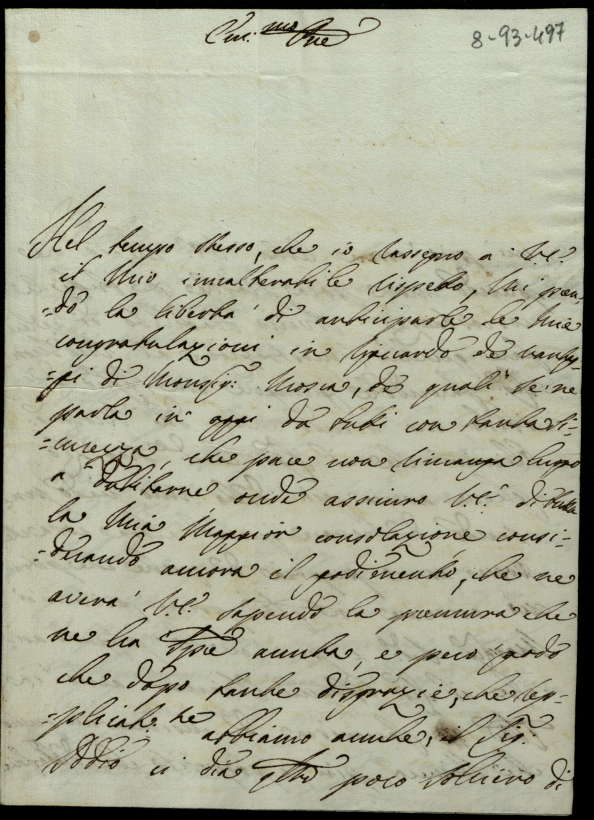 8-93-497
Nel tempo stesso, che io rassegno a V.E.
il mio inalterabile rispetto, mi pren-
-do la libertà di anticiparle le mie
congratulazioni in riguardo de vantag-
-gi di Monsig.r Mosca, de quali se ne
parla in oggi da tutti con tanta si-
-curezza, che pare non rimanga luogo
a dubitarne onde assicuro V.E. di tutta
la mia maggior consolazione consi-
-derando ancora il godimento, che ne
averà V.E. sapendo la premura che
ne ha sempre avuta, e però godo
che dopo tante disgrazie, che re-
-plicate ne abbiamo avute, il Sig.
Iddio ci dia poco sollievo di